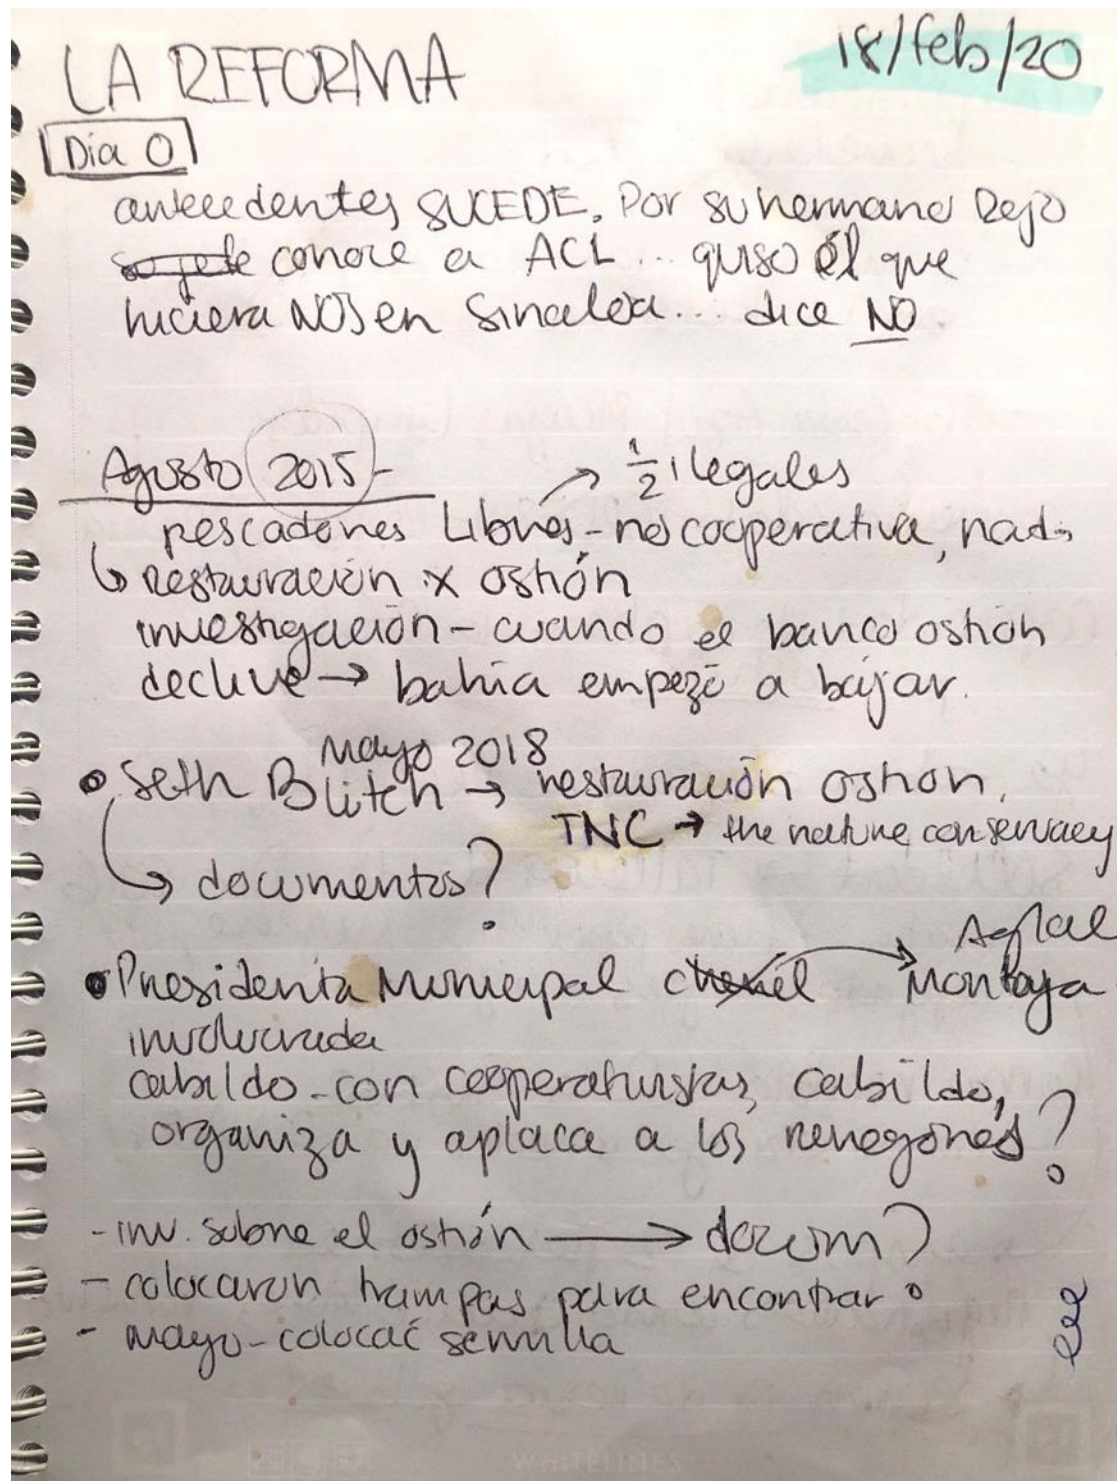 LA REFORMA
18/feb/20
Día 0
antecedentes SUCEDE. Por su hermano Rejo
conoce a ACL... quiso él que
hiciera NOS en Sinaloa... dice NO
Agosto 2015-
→ 1/2 ilegales
pescadores Libres - no cooperativa, nad
↳ restauración x ostión
investigación - cuando el banco ostión
declive → bahía empezó a bajar.
mayo 2018
• Seth Blitch → restauración ostion,
TNC → the nature conservacy
↳ documentos?
• Presidenta Municipal → Montoya
involucrada
cabildo - con cooperativistas, cabildo,
organiza y aplaca a los renegones?
- inv. sobre el ostión → docum?
- colocaron trampas para encontrar
- mayo - colocac semilla
WHITELINES